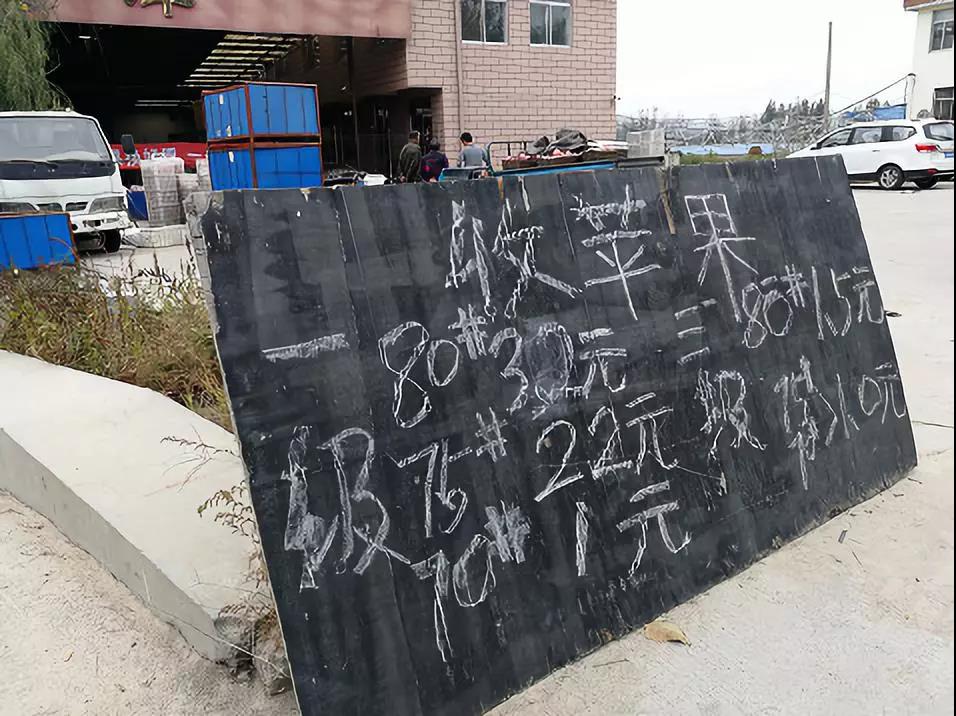 收苹果
一 80# 30元 三 80# 15元
级 75# 22元 级 1.0元
70# 1元